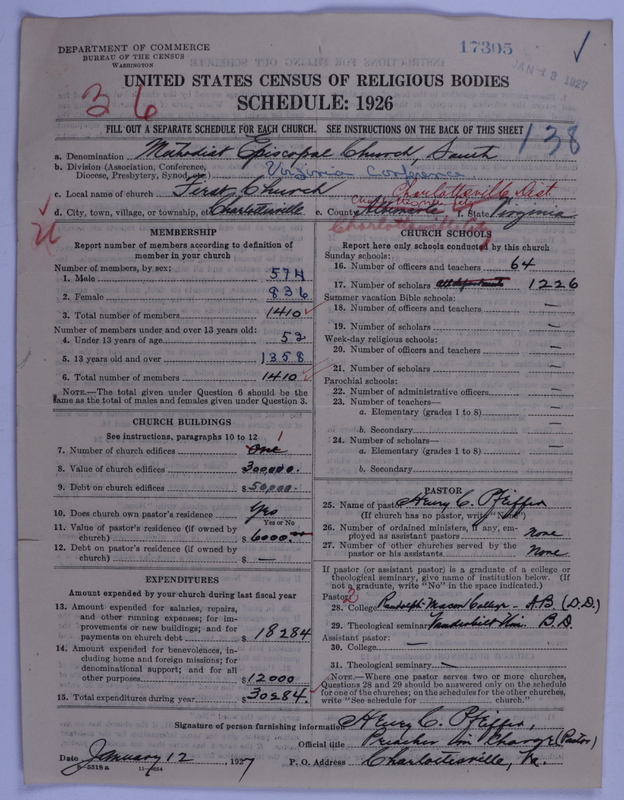 DEPARTMENT OF COMMERCE
BUREAU OF THE CENSUS
WASHINGTON
17395
JAN 13 1927
UNITED STATES CENSUS OF RELIGIOUS BODIES
SCHEDULE: 1926
36
138
FILL OUT A SEPARATE SCHEDULE FOR EACH CHURCH. SEE INSTRUCTIONS ON THE BACK OF THIS SHEET
a. Denomination Methodist Episcopal Church, South
b. Division (Association, Conference, Diocese, Presbytery, Synod, etc.) Virginia Conference
c. Local name of church First Church Charlottesville Dist.
d. City, town, village, or township, etc. Charlottesville e. County Albemarle f. State Virginia
Charlottesville City
MEMBERSHIP
Report number of members according to definition of
member in your church
Number of members, by sex:
1. Male 574
2. Female 836
3. Total number of members 1410
Number of members under and over 13 years old:
4. Under 13 years of age 52
5. 13 years old and over 1358
6. Total number of members 1410
NOTE.—The total given under Question 6 should be
same as the total of males and females given under Question 3.
CHURCH BUILDINGS
See instructions, paragraphs 10 to 12
1
7. Number of church edifices One
8. Value of church edifices 300,000.
9. Debt on church edifices $50,000.
10. Does church own pastor's residence Yes
Yes or No
11. Value of pastor's residence (if owned by
church) $6000.00
12. Debt on pastor's residence (if owned by
church) $ —
EXPENDITURES
Amount expended by your church during last fiscal year
13. Amount expended for salaries, repairs,
and other running expenses; for im-
provements or new buildings; and for
payments on church debt $18284
14. Amount expended for benevolences, in-
cluding home and foreign missions; for
denominational support; and for all
other purposes $12000
15. Total expenditures during year $30284.
CHURCH SCHOOLS
Report here only schools conducted by this church
Sunday schools:
16. Number of officers and teachers 64
17. Number of scholars all departments 1226
Summer vacation Bible schools:
18. Number of officers and teachers —
19. Number of scholars —
Week-day religious schools:
20. Number of officers and teachers —
21. Number of scholars —
Parochial schools:
22. Number of administrative officers —
23. Number of teachers—
a. Elementary (grades 1 to 8) —
b. Secondary —
24. Number of scholars—
a. Elementary (grades 1 to 8) —
b. Secondary
PASTOR
25. Name of pastor Henry C. Pfeiffer
(If church has no pastor, write "None")
26. Number of ordained ministers, if any, em-
ployed as assistant pastors none
27. Number of other churches served by the
pastor or his assistants None
If pastor (or assistant pastor) is a graduate of a college or
theological seminary, give name of institution below. (If
not a graduate, write "No" in the space indicated.)
Pastor: 2
28. College Randolph-Macon College - A.B. (D.D.)
29. Theological seminary Vanderbilt Uni. B.D.
Assistant pastor:
30. College —
31. Theological seminary —
NOTE.—Where one pastor serves two or more churches,
Questions 28 and 29 should be answered only on the schedule
for one of the churches; on the schedules for the other churches,
write "See schedule for church."
Signature of person furnishing information Henry C. Pfeiffer,
Official title Preacher in Charge (Pastor)
Date January 12, 1927 P. O. Address Charlottesville, Va.
8-5318a 11-9664